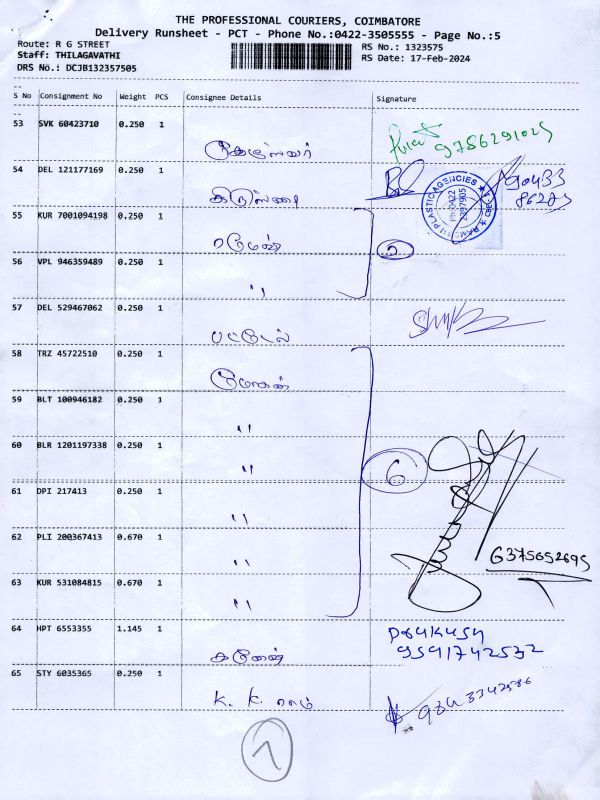 THE PROFESSIONAL COURIERS, COIMBATORE
Delivery Runsheet - PCT - Phone No.:0422-3505555 - Page No.:5
Route: R G STREET
RS No.: 1323575
Staff: THILAGAVATHI
RS Date: 17-Feb-2024
DRS No.: DCJB132357505
S No Consignment No Weight PCS Consignee Details Signature
53 SVK 60423710 0.250 1
9786291025
54 DEL 121177169 0.250 1
55 KUR 7001094198 0.250 1
56 VPL 946359489 0.250 1
"
57 DEL 529467062 0.250 1
பட்டேல்
58 TRZ 45722510 0.250 1
59 BLT 100946182 0.250 1
"
60 BLR 1201197338 0.250 1
"
6
61 DPI 217413 0.250 1
"
62 PLI 200367413 0.670 1
"
6375652695
63 KUR 531084815 0.670 1
"
64 HPT 6553355 1.145 1
9591742572
65 STY 6035365 0.250 1
K. K. ராம்
9843342586